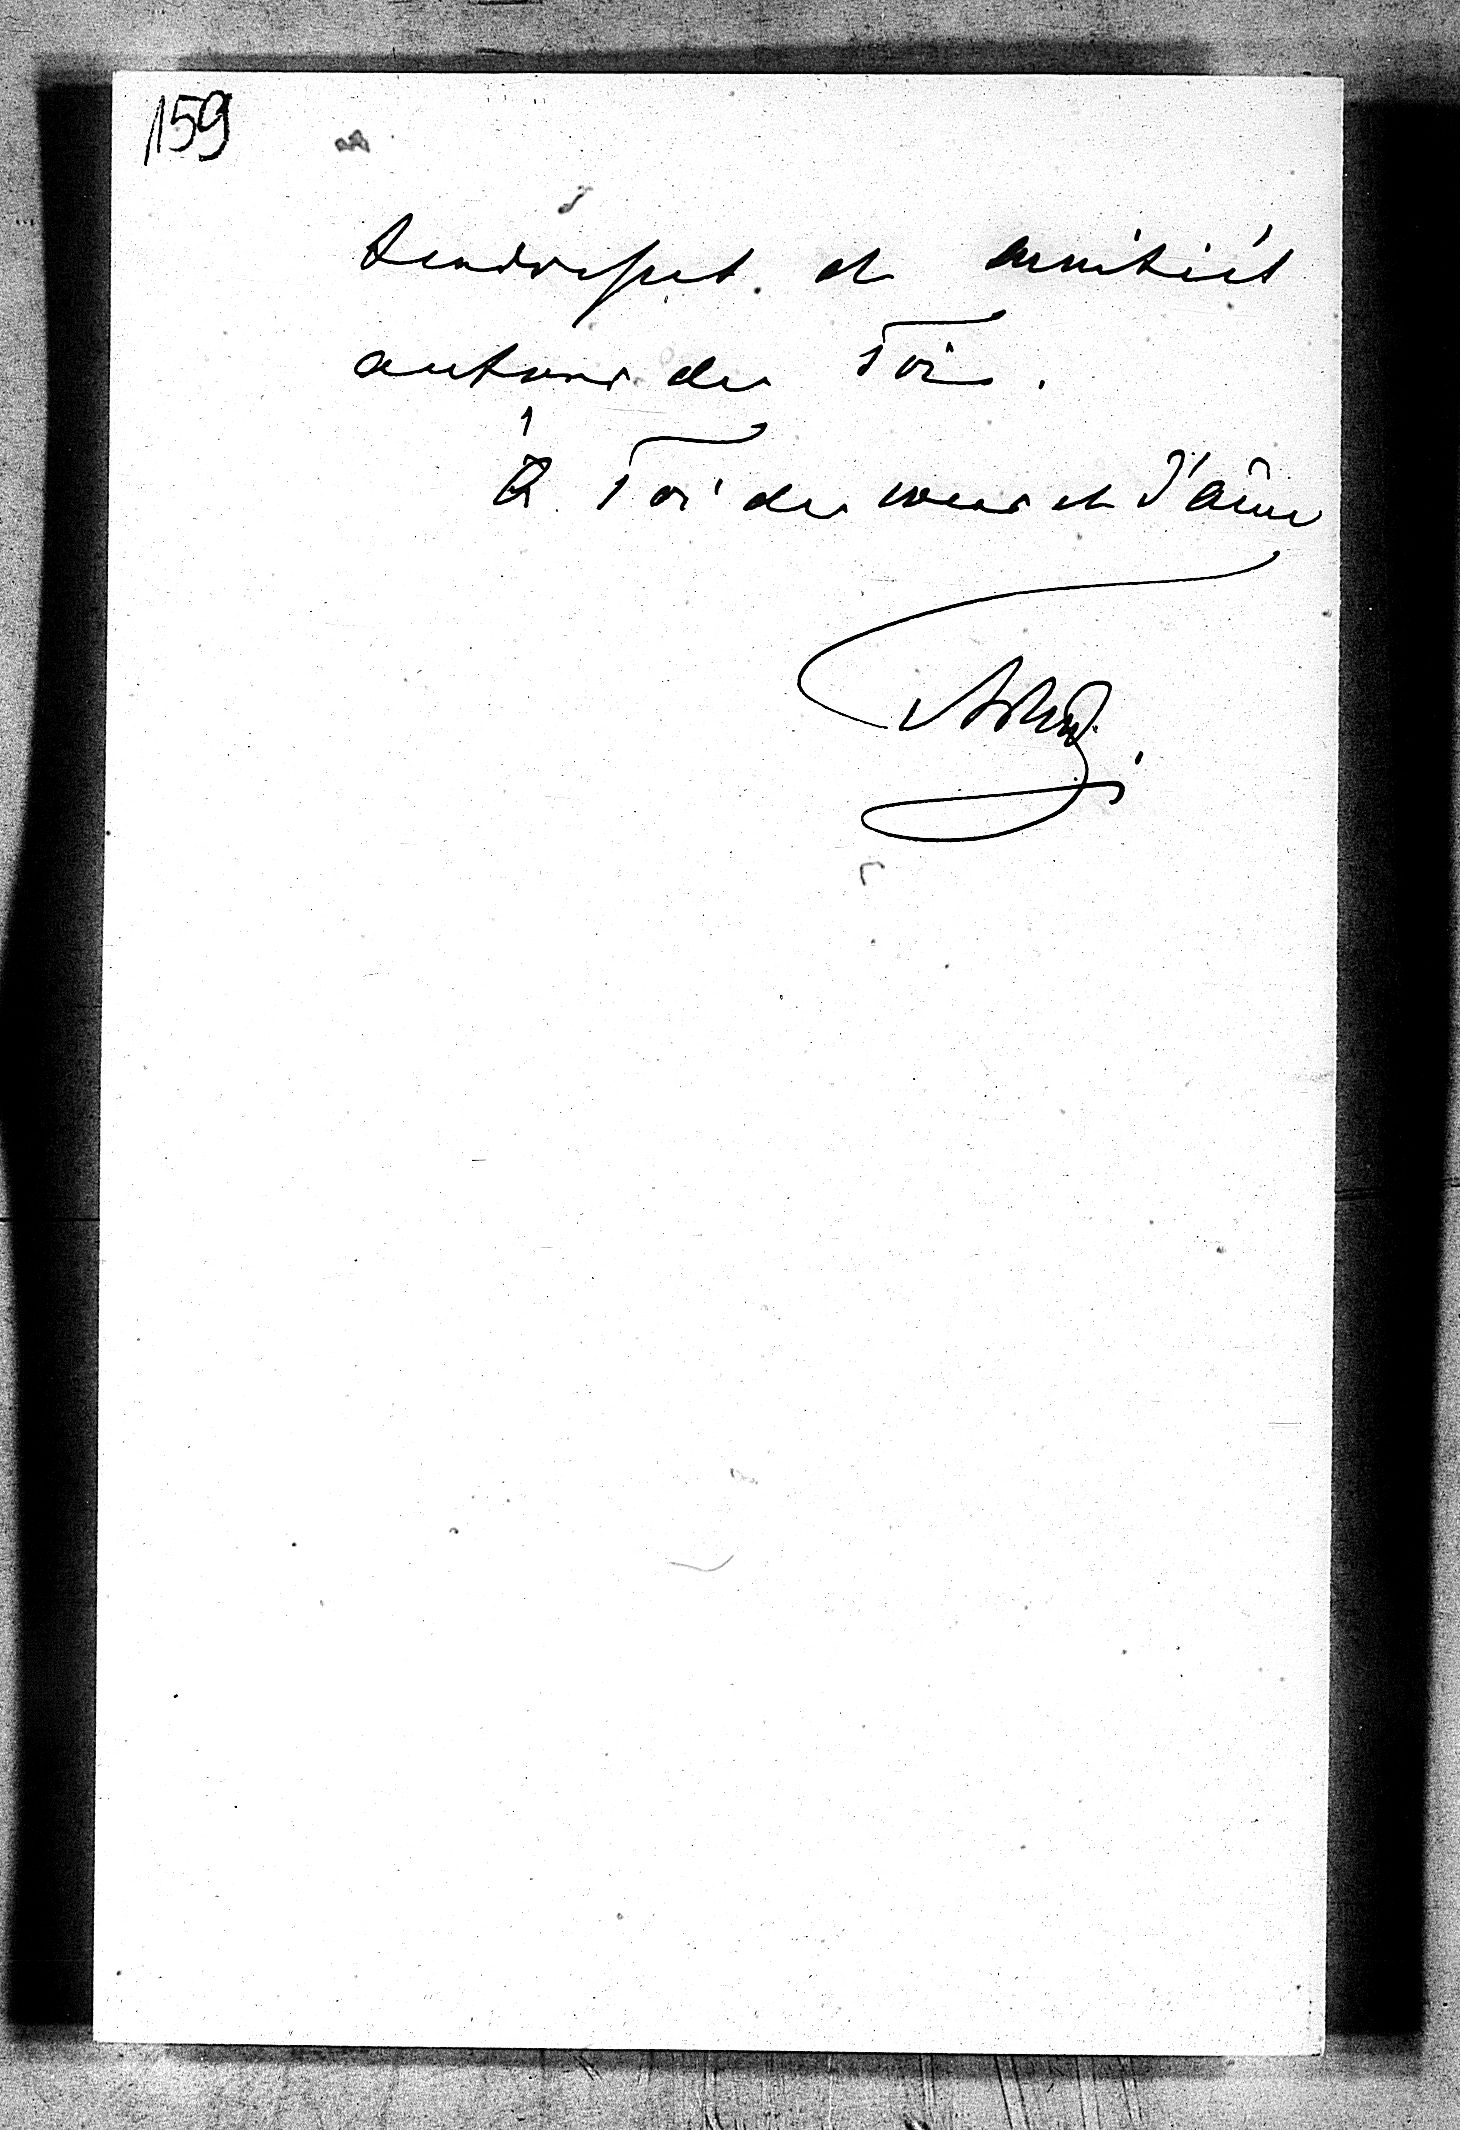 159
tendresses et amitiés
autour de Toi.
À Toi de cœur et d'âme